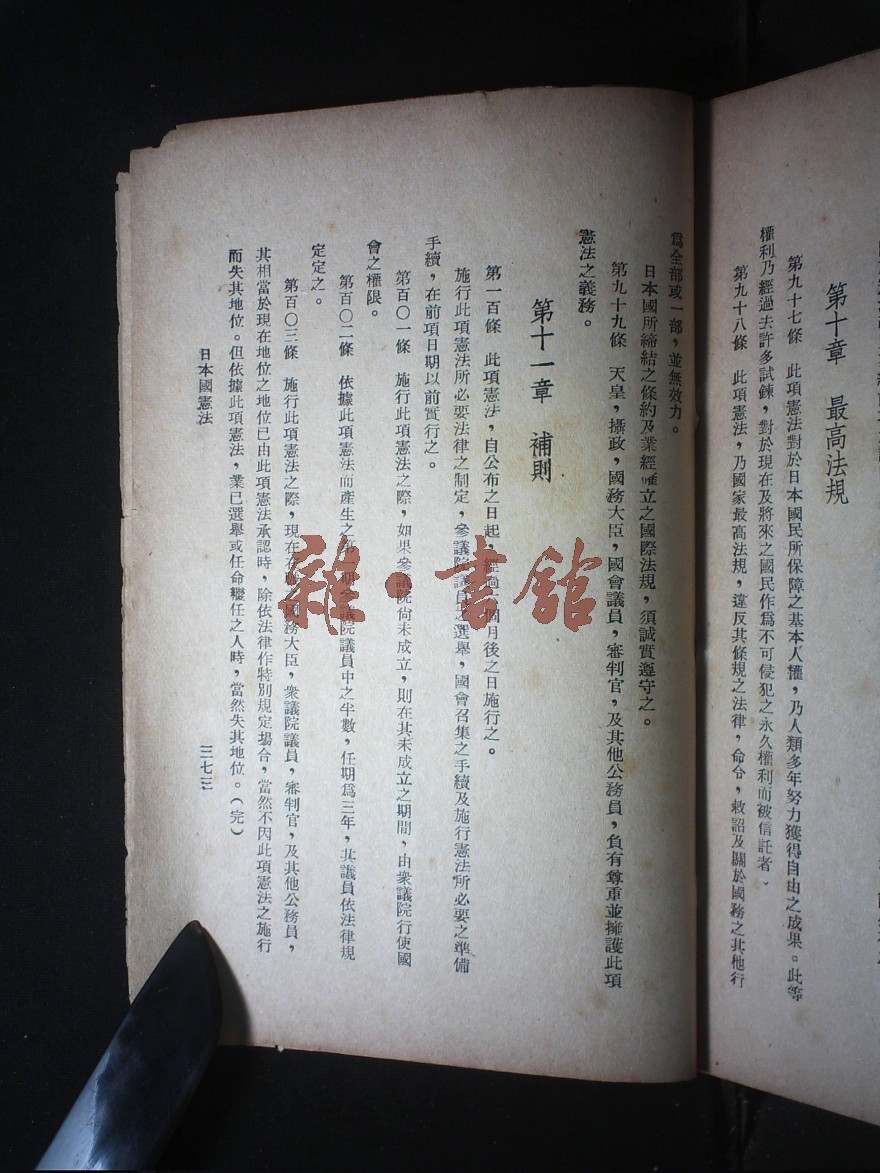 第十章　最高法規
第九十七條　此項憲法對於日本國民所保障之基本人權，乃人類多年努力獲得自由之成果。此等
權利乃經過去許多試鍊，對於現在及將來之國民作爲不可侵犯之永久權利而被信託者。
第九十八條　此項憲法，乃國家最高法規，違反其條規之法律，命令，敕詔及關於國務之其他行
爲全部或一部，並無效力。
日本國所締結之條約及業經確立之國際法規，須誠實遵守之。
第九十九條　天皇，攝政，國務大臣，國會議員，審判官，及其他公務員，負有尊重並擁護此項
憲法之義務。
第十一章　補則
第一百條　此項憲法，自公布之日起，經過六個月後之日施行之。
施行此項憲法所必要法律之制定，參議院議員之選舉，國會召集之手續及施行憲法所必要之準備
手續，在前項日期以前實行之。
第百〇一條　施行此項憲法之際，如果參議院尚未成立，則在其未成立之期間，由衆議院行使國
會之權限。
第百〇二條　依據此項憲法而產生之第一期參議院議員中之半數，任期爲三年，其議員依法律規
定定之。
第百〇三條　施行此項憲法之際，現在在職國務大臣，衆議院議員，審判官，及其他公務員，
其相當於現在地位之地位已由此項憲法承認時，除依法律作特別規定場合，當然不因此項憲法之施行
而失其地位。但依據此項憲法，業已選舉或任命繼任之人時，當然失其地位。（完）
日本國憲法
三七三
雜·書館